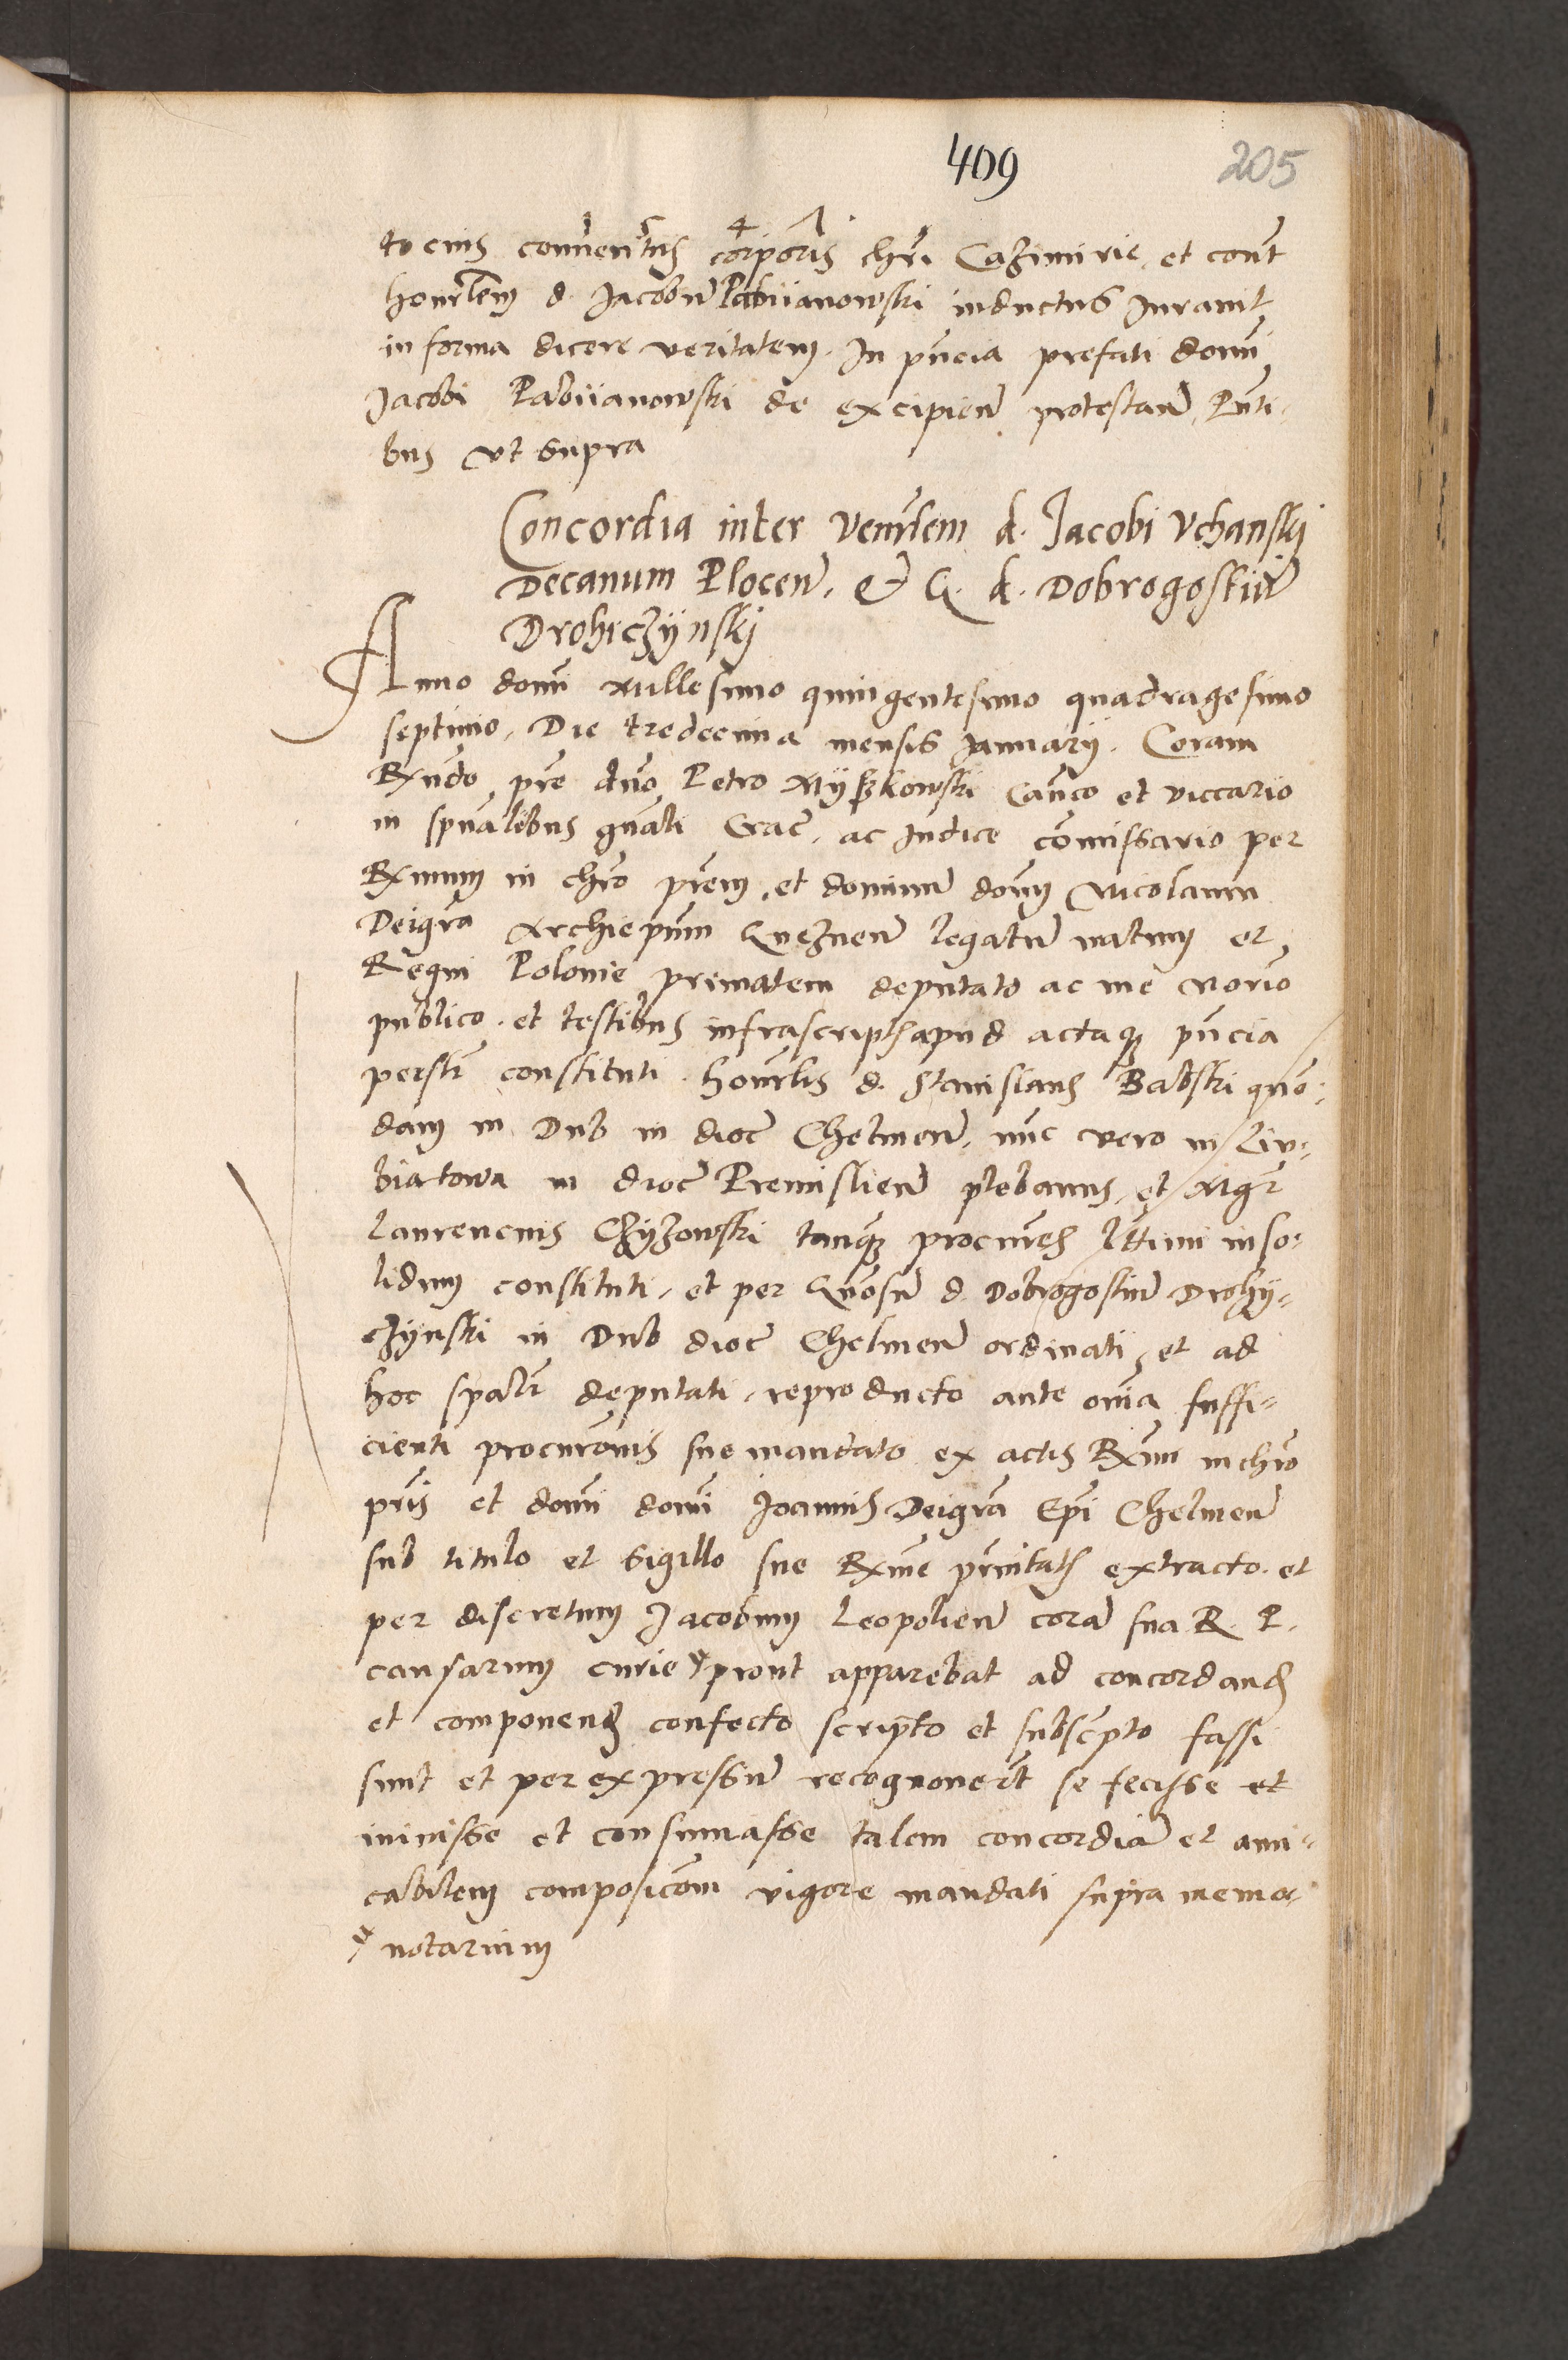 409 205
tocius conventus corporis chri Cazimirie, et cont
honrlem d. Jacobu Pabiianowski inductus Juravit
in forma dicere veritatem. In pncia prefati domi
Jacobi Pabiianowski de excipien protestan, Pnti-
bus vt supra
Concordia inter Venrlem d. Jacobi Vchanskj
Decanum Plocen. et G. d. Dobrogostium
Drohiczÿnskj
Anno domi Millesimo quingentesimo quadragesimo
septimo, Die tredecima mensis Januarÿ. Coram
Rxndo pre dno Petro Mÿszkowski Canco et viccario
in spualibus gnali Crac, ac Judice comissario per
Rxmum in chro prem, et dominu domu Nicolaum
Dei gra Archiepum Gneznen legatu natum et
Regni Polonie primatem deputato ac me No rio
publico, et testibus infrascriptis apud actaque pncia
perstr constituti. honrlis d. Stanislaus Babski quo-
dam in Dub in dioc Chelmen, nunc vero in Liu-
biatowa in dioc Premislien plebanus, et Mgr
Laurencius Czÿzowski tanquam procures lttimi inso-
lidum constituti, et per Gnosu d. Dobrogostium Drohÿ-
czÿnski in Dub dioc Chelmen ordinati, et ad
hoc spalr deputati, reproducto ante omia suffi-
cienti procuronis sue mandato ex actis Rxmi in chro
pris et domi domi Joannis Dei gra Epi Chelmen
sub titulo et sigillo sue Rxme prnitatis extracto. et
per discretum Jacobum Leopolien cora sua R. P.
causarum curie * prout apparebat ad concordand
et componend confecto scripto et subscpto fassi
sunt et per expressum recognouert se fecisse et
inivisse et consumasse talem concordia et ami-
cabilem composicom vigore mandati supra memo-
* notarium